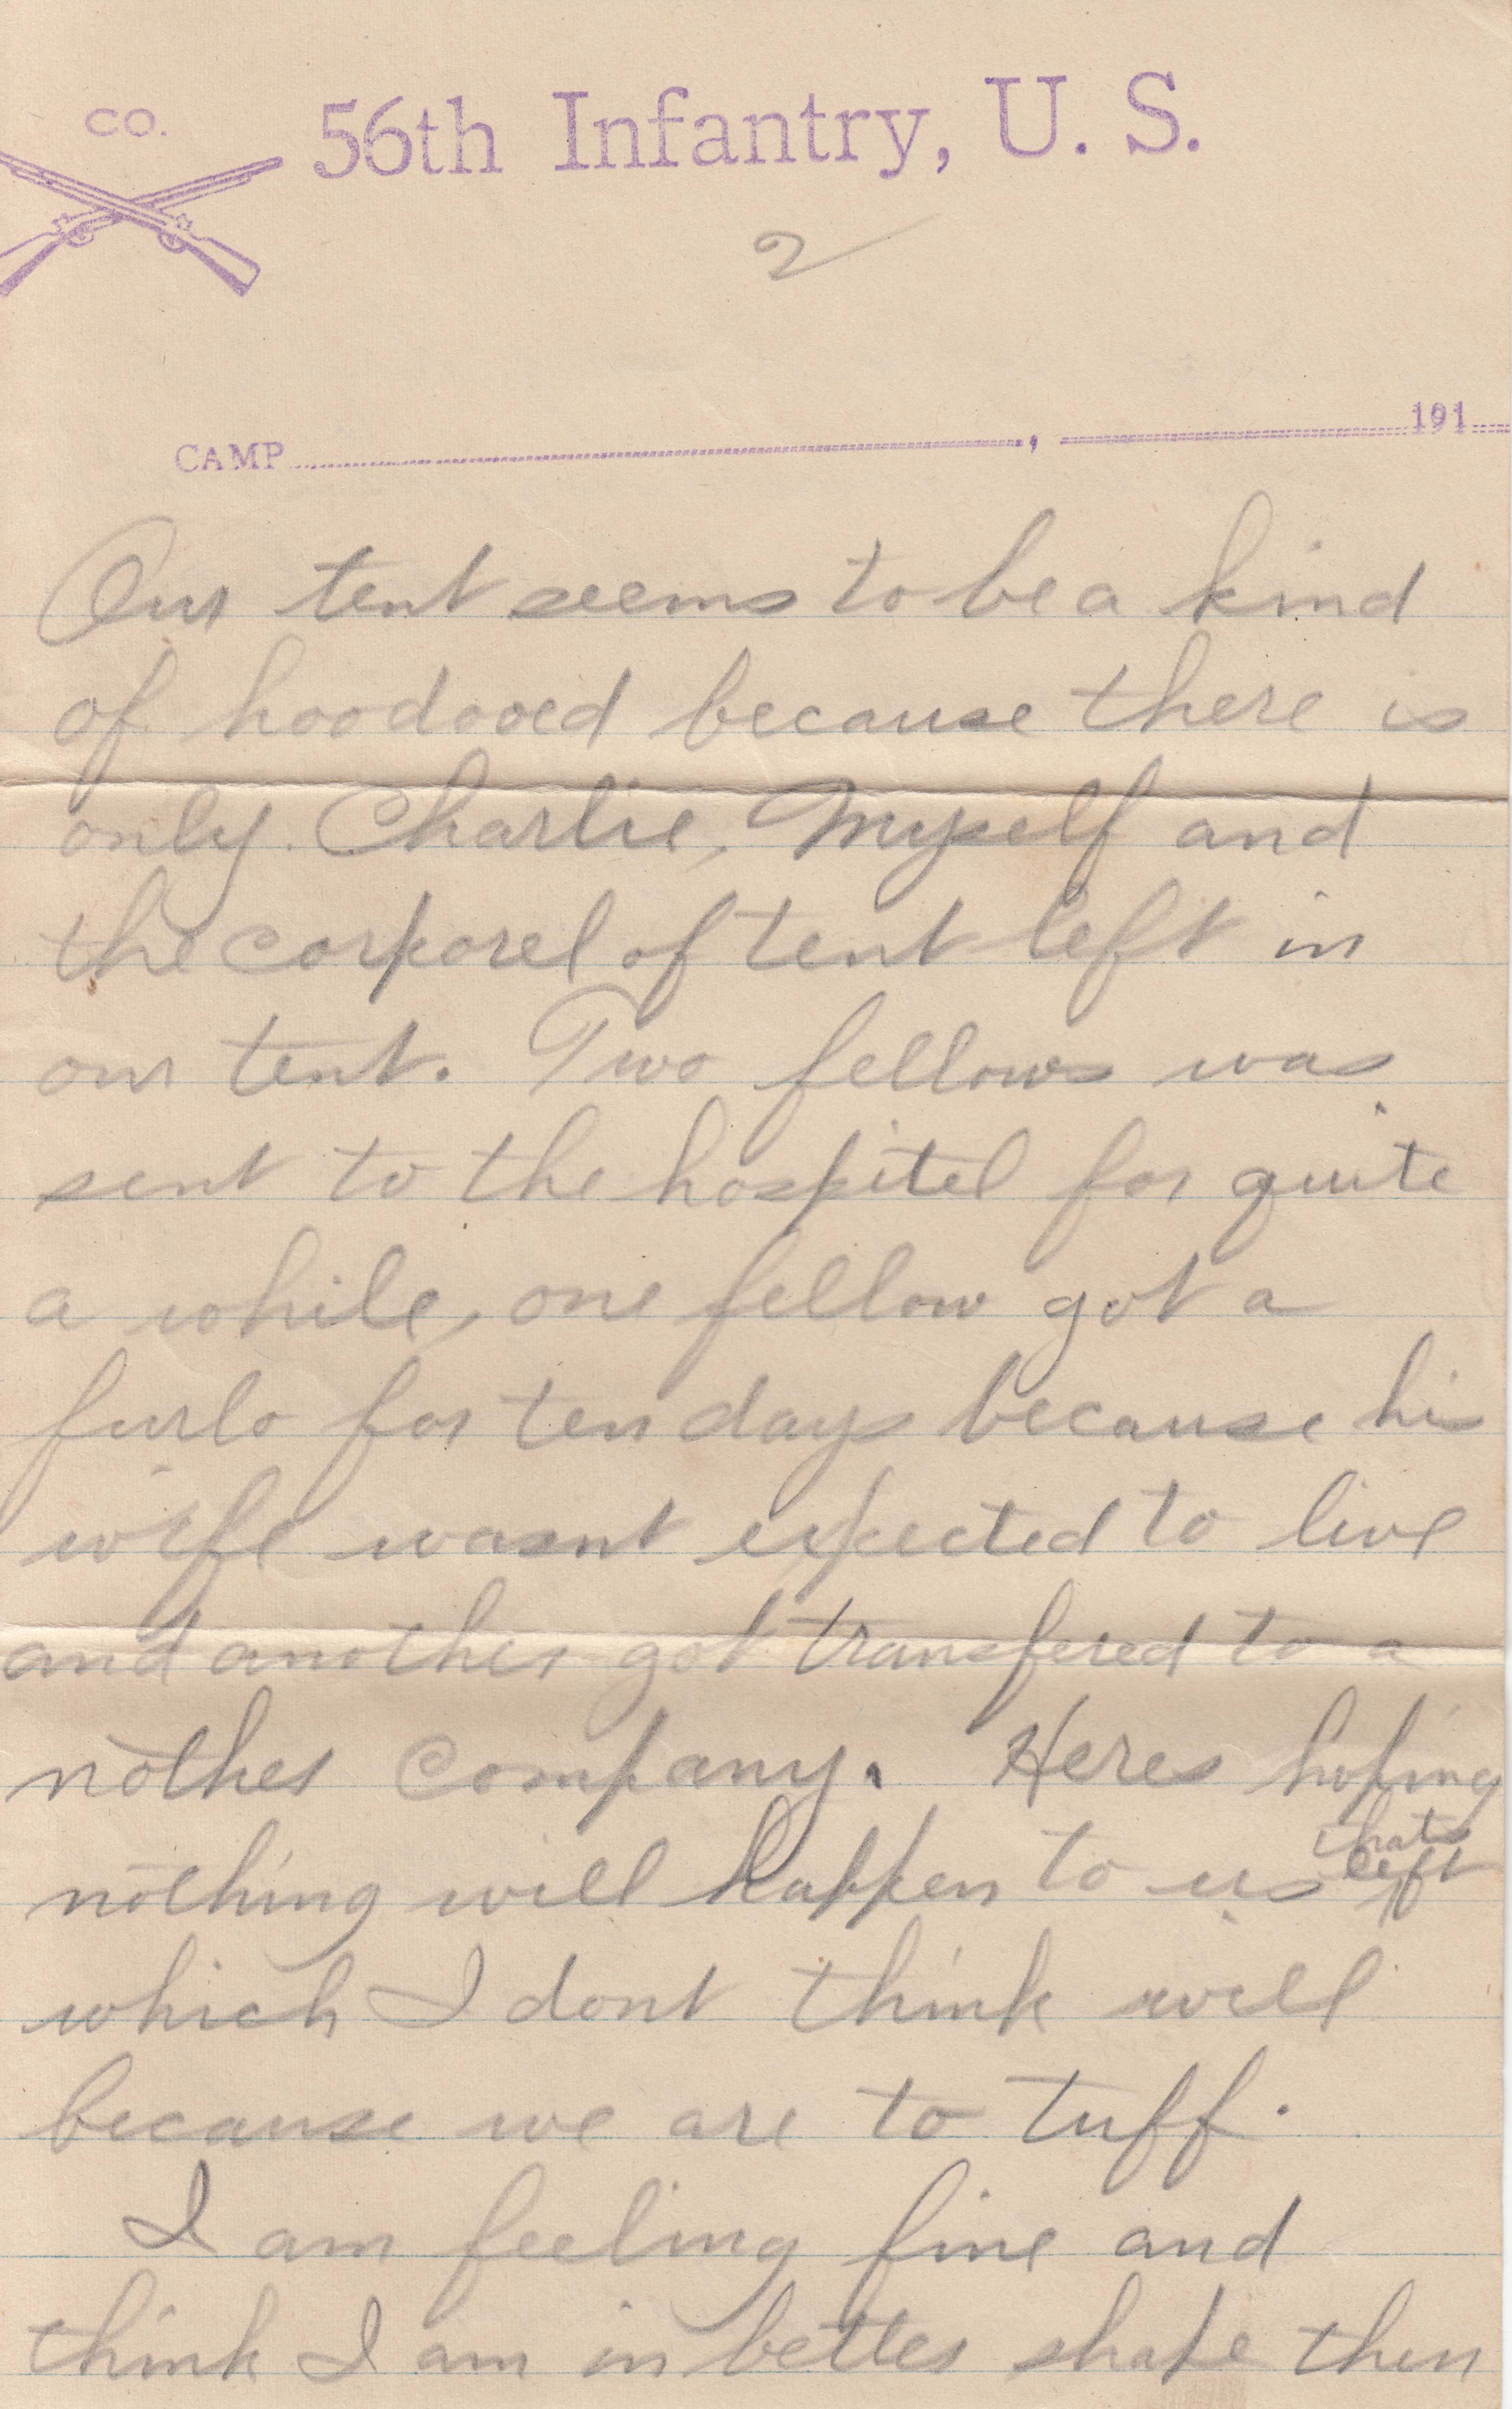 CO.
56th Infantry, U. S.
2
CAMP , 191
Our tent seems to be a kind
of hoodooed because there is
only Charlie, Myself and
the corporel of tent left in
our tent. Two fellows was
sent to the hospitel for quite
a while, one fellow got a
furlo for ten days because his
wife wasnt expected to live
and another got transfered to a
nother company. Heres hoping
nothing will happen to us thats left
which I dont think will
because we are to tuff.
I am feeling fine and
think I am in better shape then